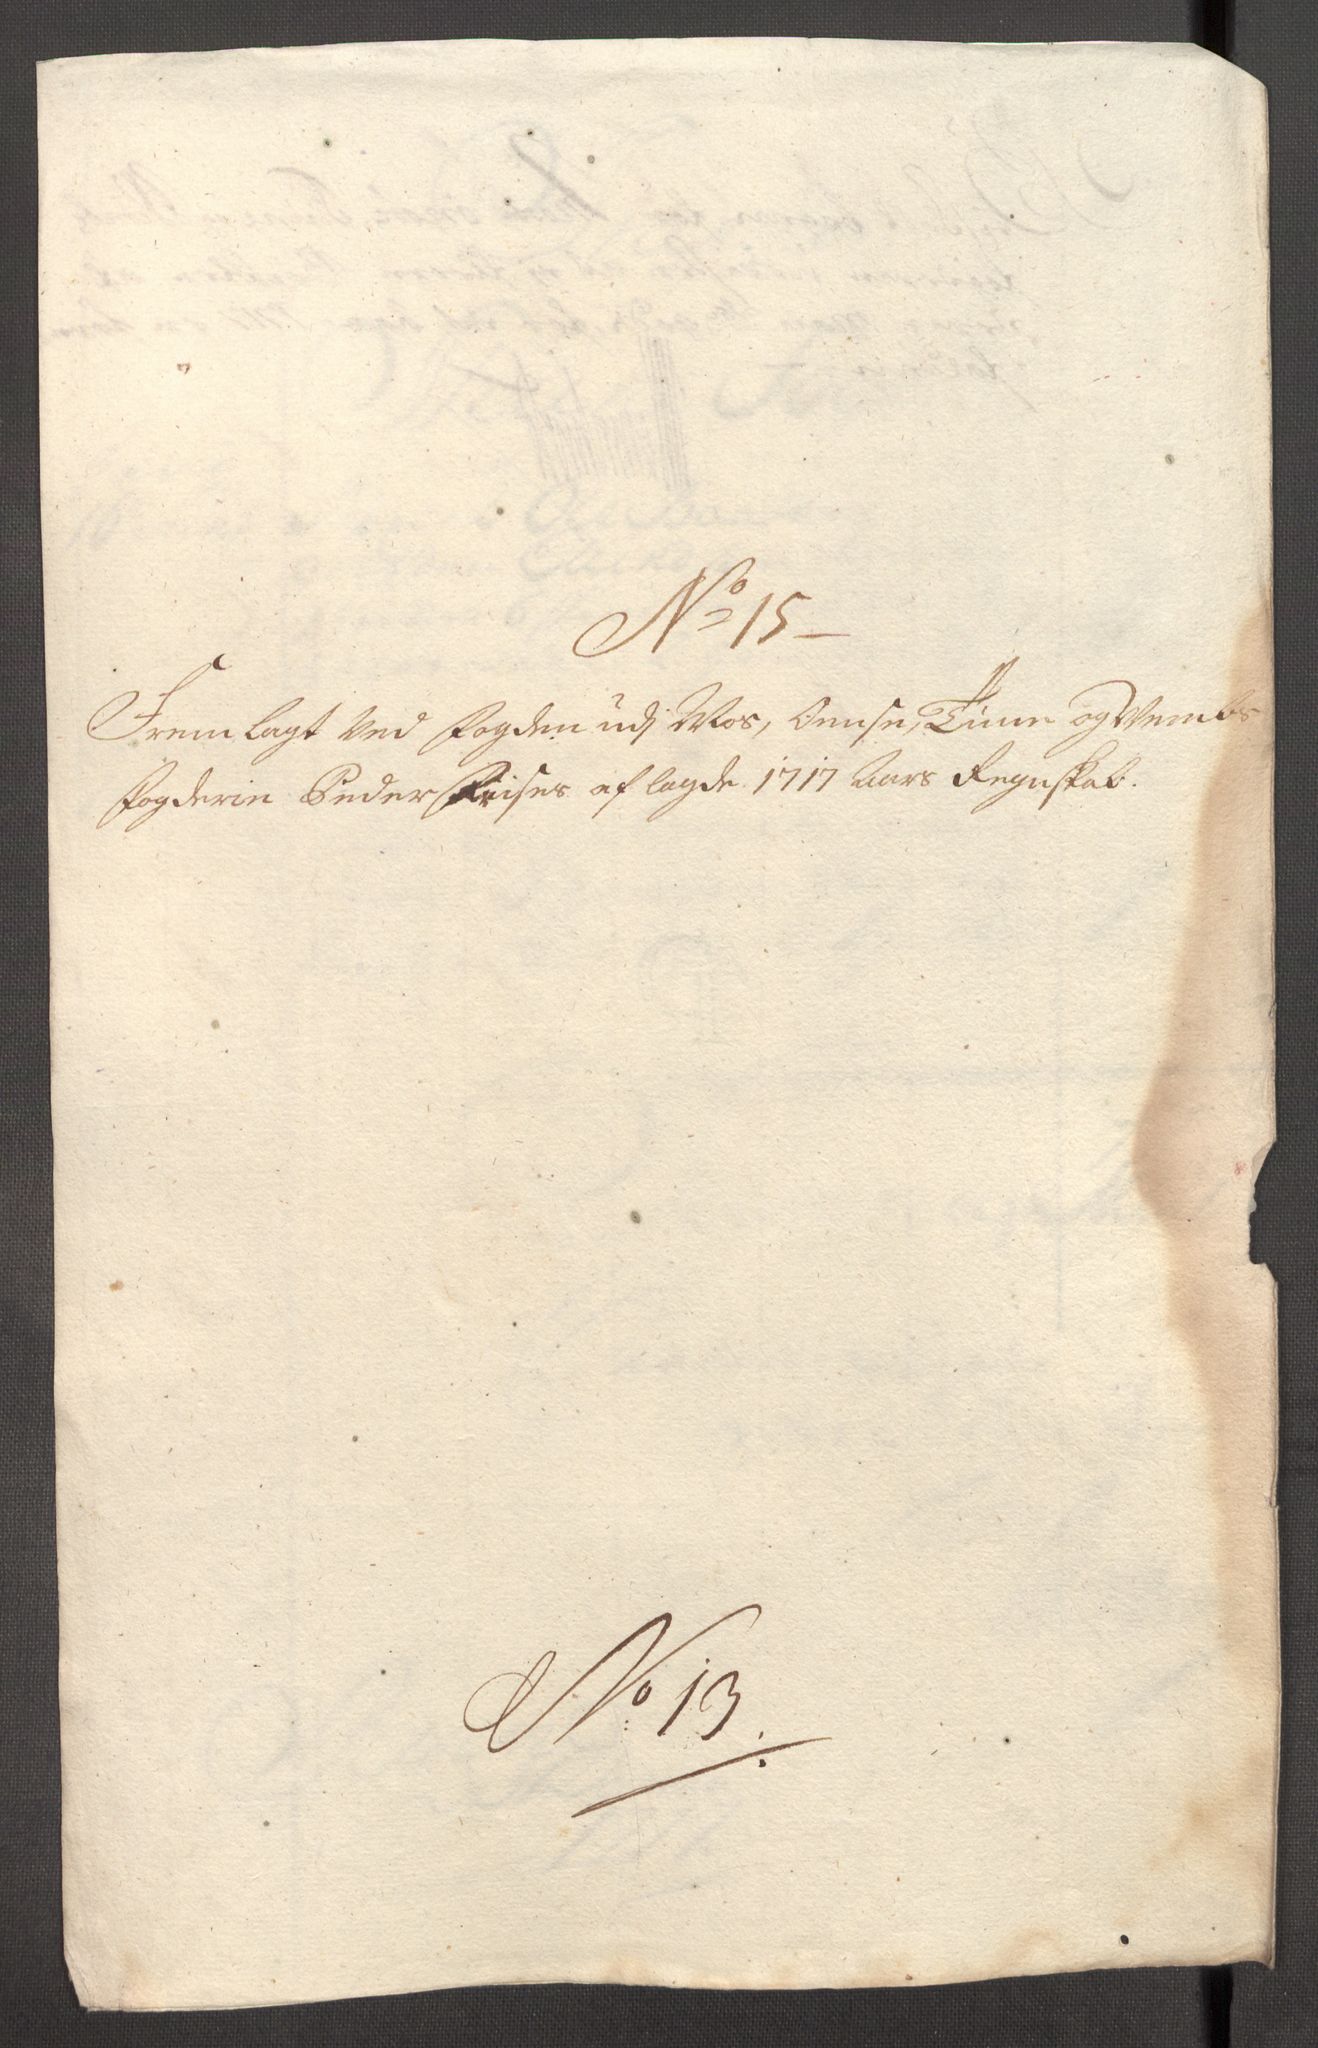 No 15
Fremlagt ved Fogden udj Mos, Oensøe, Tune og Wembs
Fogderie Peder Friises aflagde 1717 Aars Regnskab.
No 13.